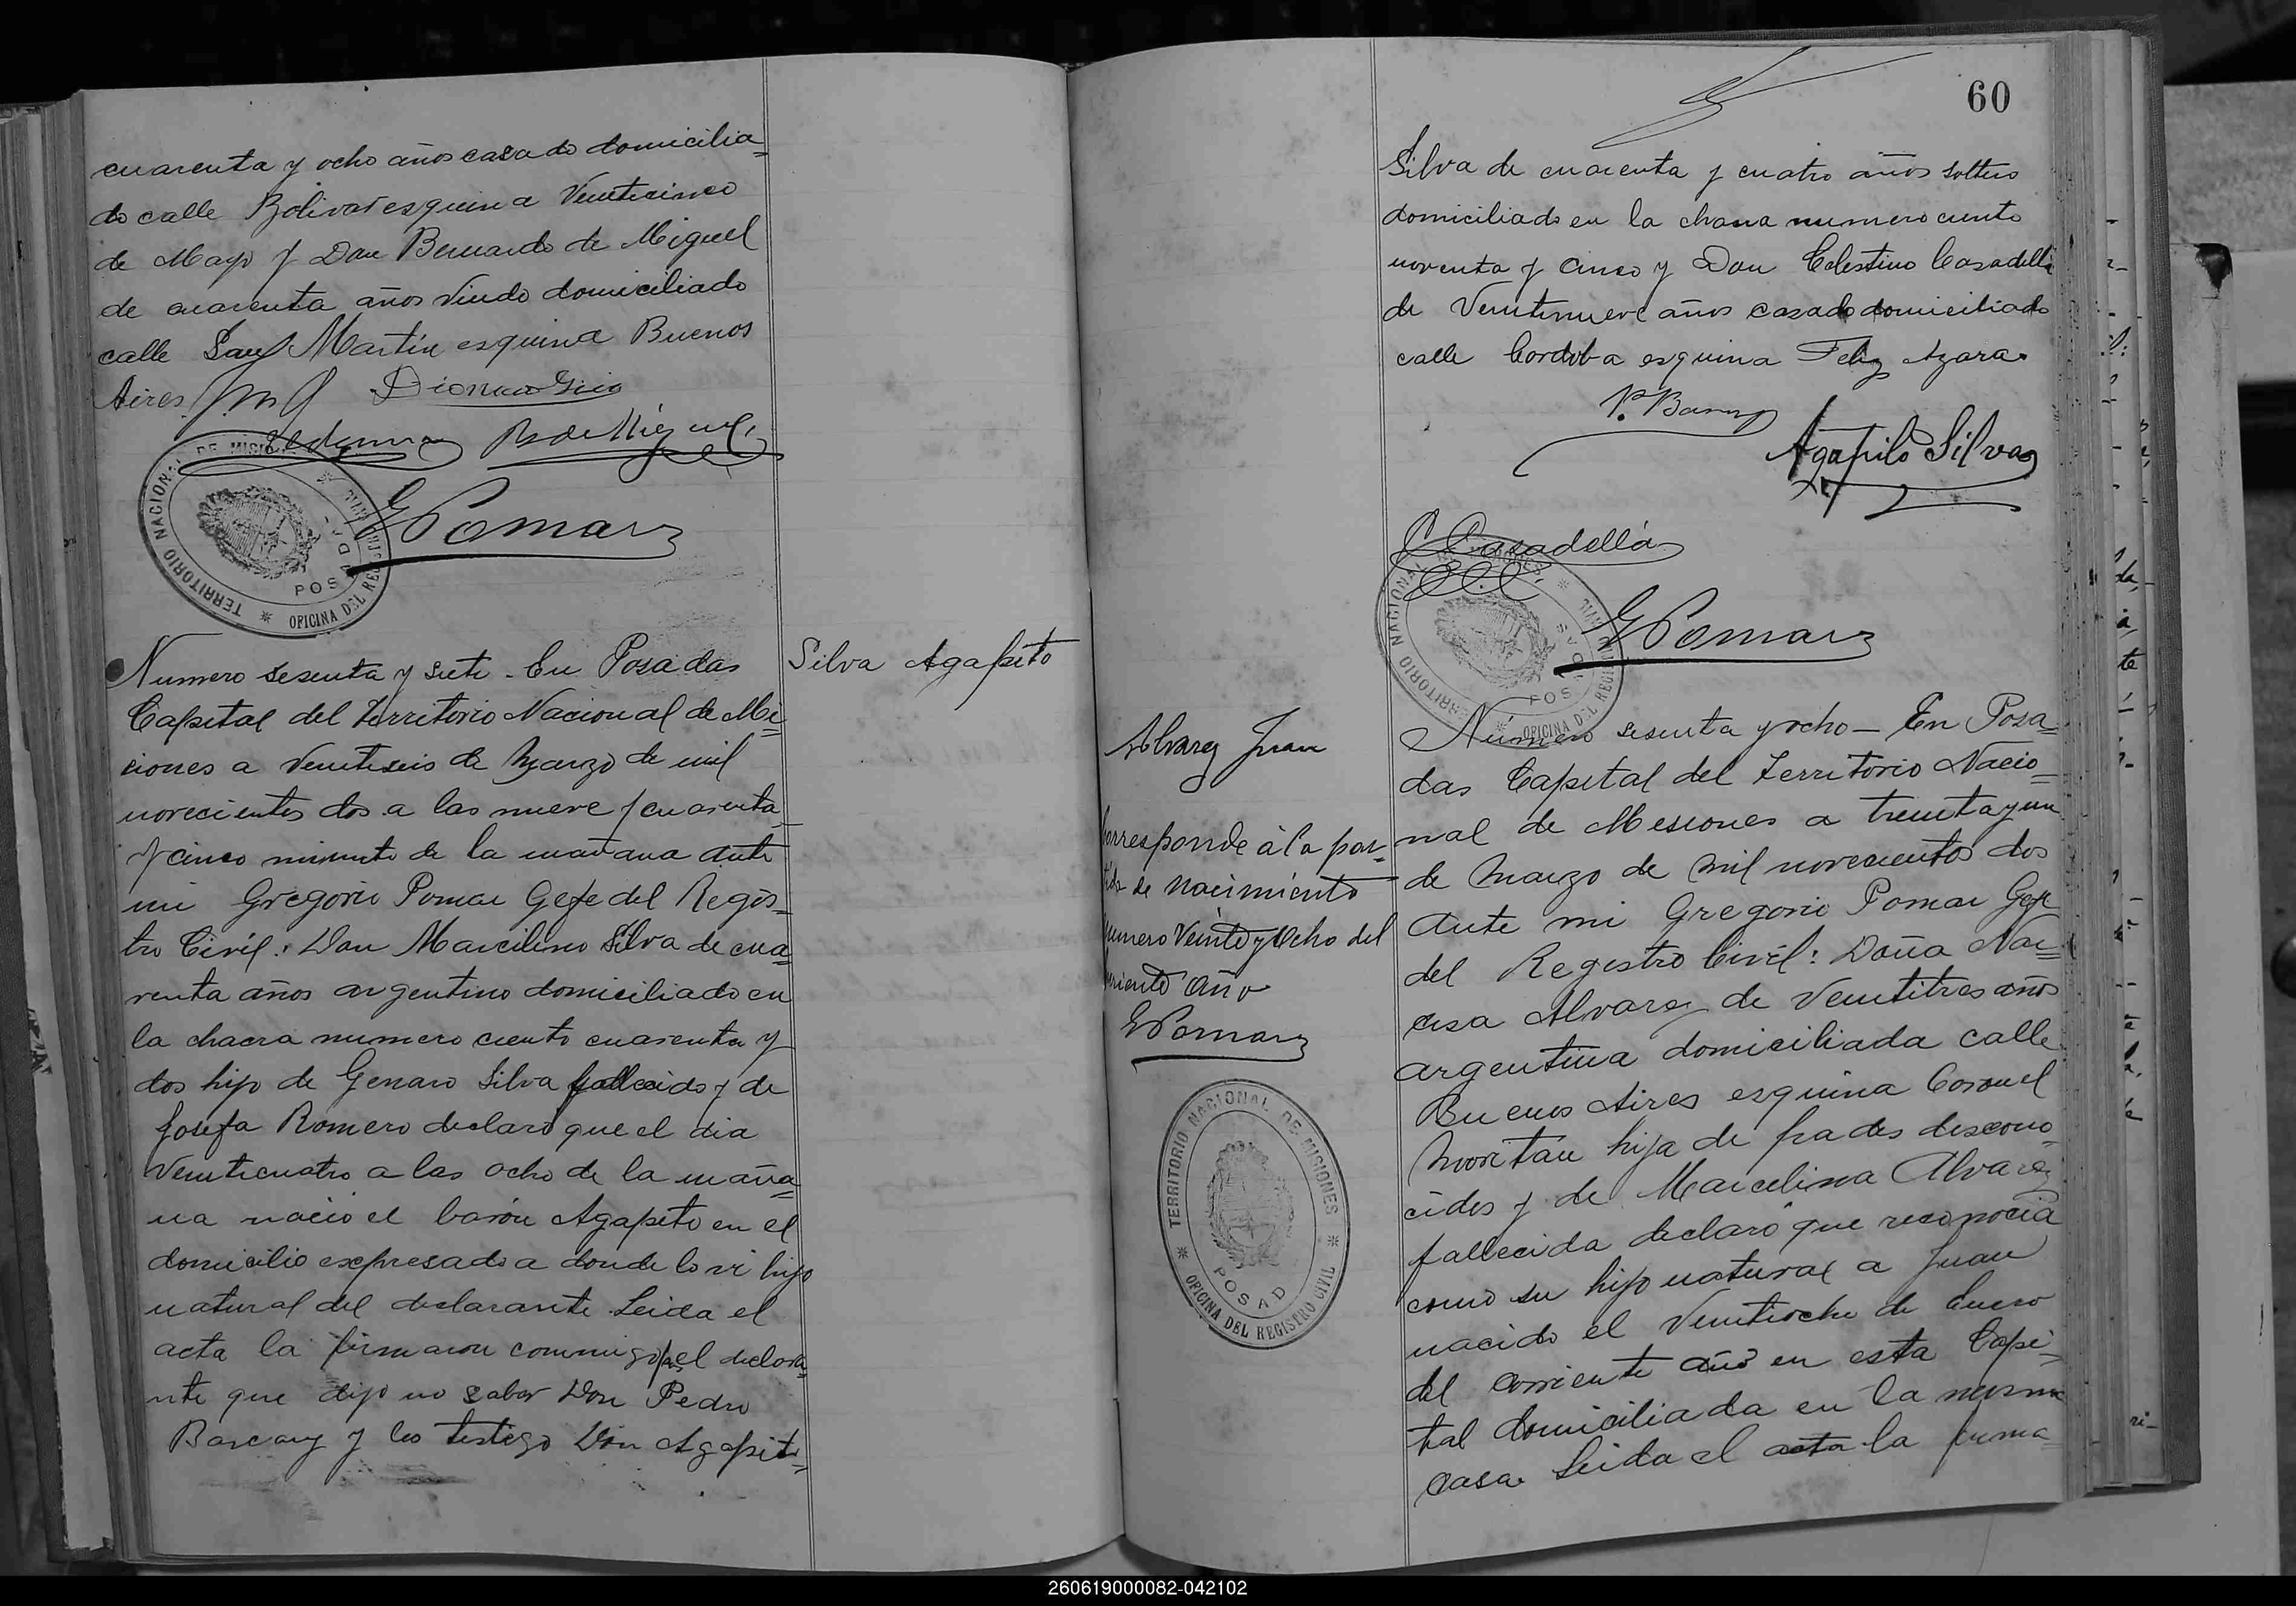 cuarenta y ocho años casado domicilia=
do calle Bolivar esquina Veinticinco
de Mayo y Don Bernardo de Miguel
de cuarenta años viudo domiciliado
calle San Martin esquina Buenos
Aires
B de Miguel
G Pomar
TERRITORIO NACIONAL DE MISIONES
POSADAS
OFICINA DEL REGISTRO CIVIL
Numero sesenta y siete - En Posadas
Capital del Territorio Nacional de Mi=
ciones a veintiseis de Marzo de mil
novecientos dos a las nueve y cuarenta
y cinco minuto de la mañana ante
mi Gregorio Pomar Gefe del Regis=
tro Civil: Don Marcilino Silva de cua=
renta años argentino domiciliado en
la chacra numero ciento cuarenta y
dos hijo de Genaro Silva fallecido y de
Josefa Romero declaró que el dia
Veinticuatro a las ocho de la maña=
na nacio el barón Agapito en el
domicilio expresado a donde lo vi hijo
natural del declarante Leida el
acta la firmaron commigo por el declara=
nte que dijo no saber Don Pedro
Barcany y los testigo Don Agapito=
Silva Agapito
60
Silva de cuarenta y cuatro años soltero
domiciliado en la chacra numero ciento
noventa y cinco y Don Celestino Casadellá
de Veintinueve años casado domiciliado
calle Cordoba esquina Feliz Azara.
Agapito Silva
C Casadellá
G Pomar
TERRITORIO NACIONAL DE MISIONES
POSADAS
OFICINA DEL REGISTRO CIVIL
Alvarez Juan
Corresponde à la par-
tida de nacimiento
numero Veinte y Ocho del
corriente Año
G Pomar
TERRITORIO NACIONAL DE MISIONES
POSADAS
OFICINA DEL REGISTRO CIVIL
Número sesenta y ocho - En Posa=
das Capital del Territorio Nacio=
nal de Mesiones a treinta y un
de Marzo de mil novecientos dos
Ante mi Gregorio Pomar Gefe
del Registro Civil: Doña Nar=
cisa Alvarez de Veintitres años
argentina domiciliada calle
Buenos Aires esquina Coronel
Moritan hija de padres descono=
cidos y de Marcelina Alvarez
fallecida declaró que reconocia
como su hijo natural a Juan
nacido el Veintiocho de Enero
del corriente año en esta Capi=
tal domiciliada en la misma
casa. Leida el acta la firma=
260619000082-042102